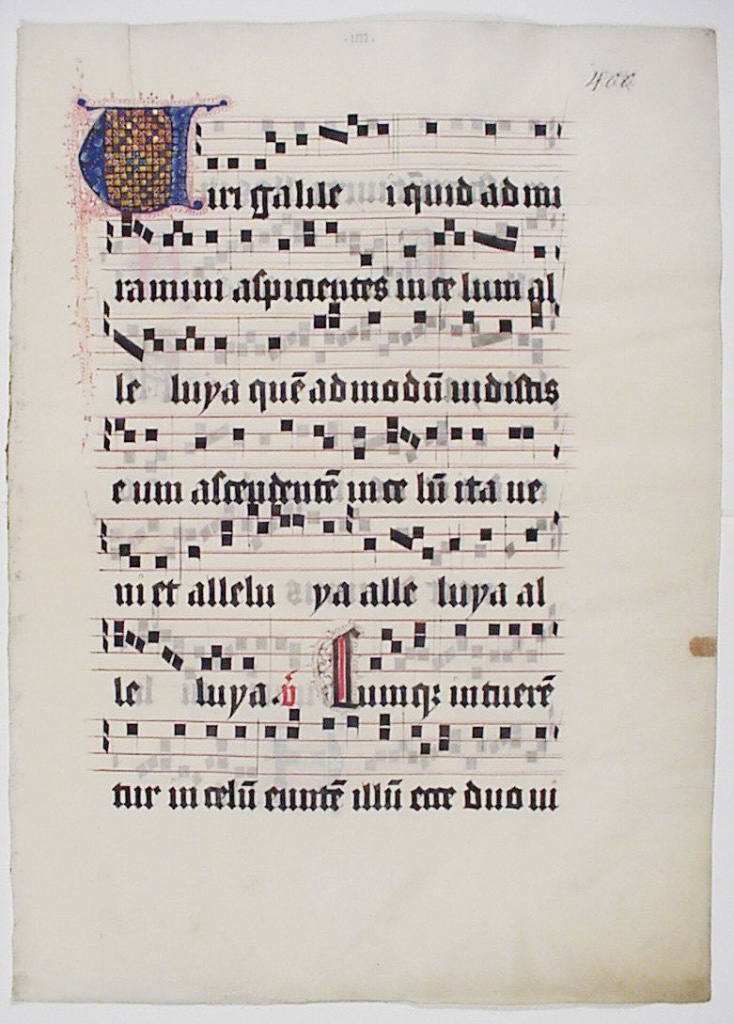 .iii.
400
Uiri galile i quid ad mi
ramini aspicientes in ce lum al
le luya quē ad modū uidistis
e um ascendentē in ce lū ita ue
ni et allelu ya alle luya al
le luya. v̄ Cumq; intuerē
tur in celū euntē illū ecce duo ui